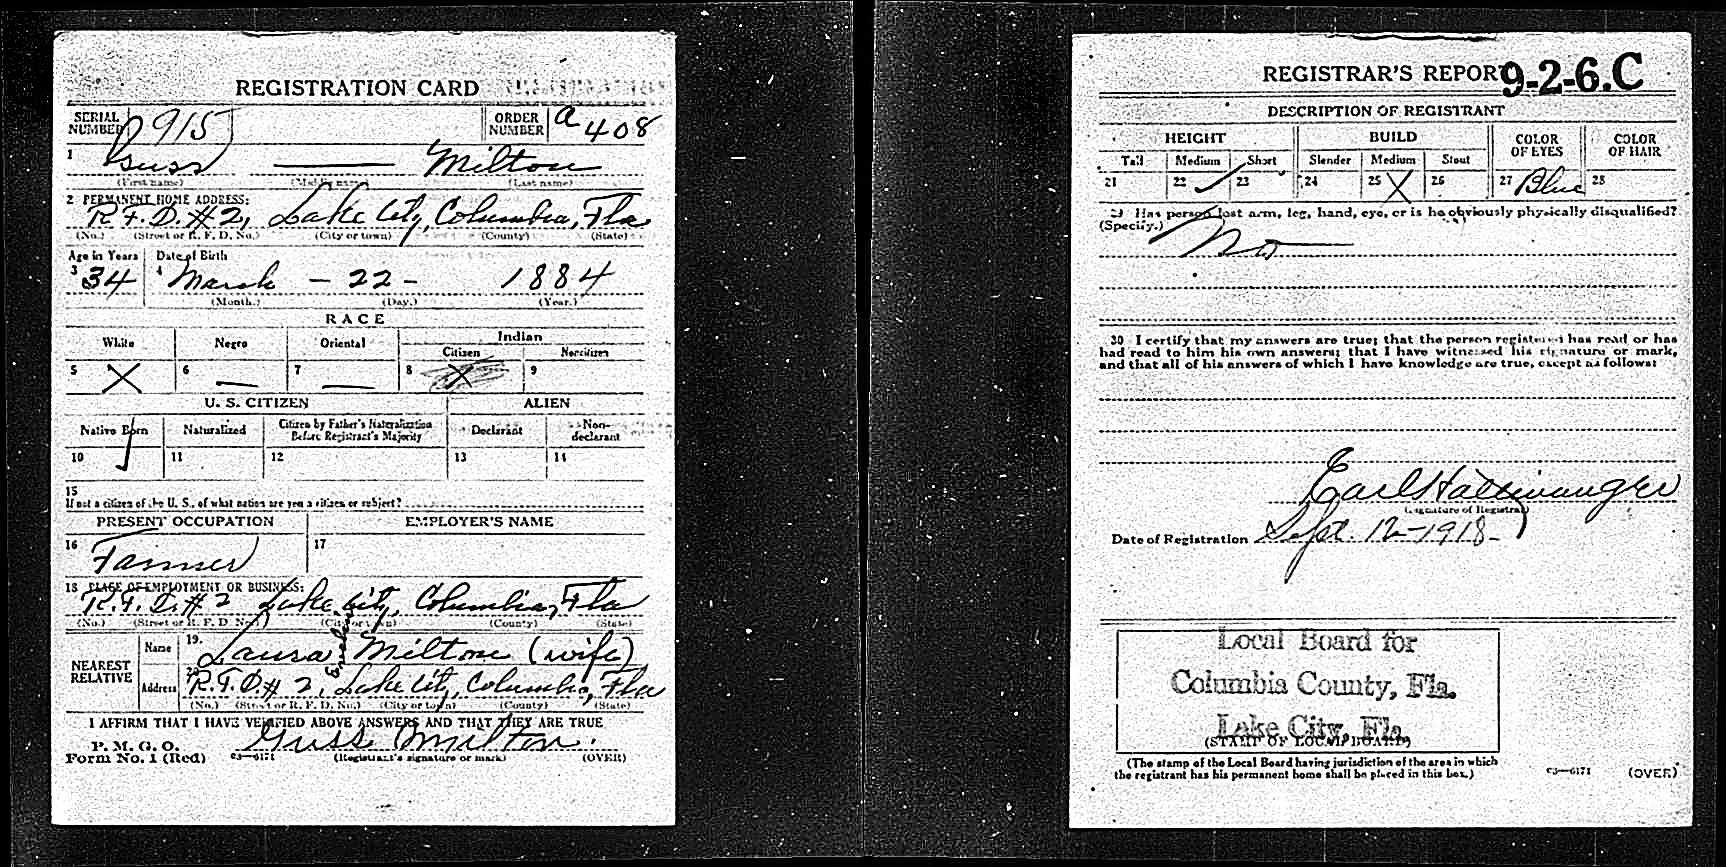 REGISTRATION CARD
SERIAL NUMBER 915 ORDER NUMBER a 408
1 Guss — Milton
(First name) (Middle name) (Last name)
2 PERMANENT HOME ADDRESS:
R.F.D. #2, Lake City, Columbia, Fla
(No.) (Street or R. F. D. No.) (City or town) (County) (State)
Age in Years Date of Birth
3 34 4 March - 22 - 1884
(Month.) (Day.) (Year.)
RACE
White Negro Oriental Indian
Citizen Noncitizen
5 X 6 — 7 — 8 X 9
U. S. CITIZEN ALIEN
Native Born Naturalized Citizen by Father's Naturalization Before Registrant's Majority Declarant Non-declarant
10 ✓ 11 12 13 14
15
If not a citizen of the U. S., of what nation are you a citizen or subject?
PRESENT OCCUPATION EMPLOYER'S NAME
16 Farmer 17
18 PLACE OF EMPLOYMENT OR BUSINESS:
R.F.D. #2 Lake City, Columbia, Fla
(No.) (Street or R. F. D. No.) (City or town) (County) (State)
NEAREST RELATIVE
Name 19. Laura Milton (wife)
Address 20 R.F.D. # 2, Lake City, Columbia, Fla
(No.) (Street or R. F. D. No.) (City or town) (County) (State)
I AFFIRM THAT I HAVE VERIFIED ABOVE ANSWERS AND THAT THEY ARE TRUE
P. M. G. O.
Form No. 1 (Red) C3—6171 Guss Milton.
(Registrant's signature or mark) (OVER)
REGISTRAR'S REPORT 9-2-6.C
DESCRIPTION OF REGISTRANT
HEIGHT BUILD COLOR OF EYES COLOR OF HAIR
Tall Medium Short Slender Medium Stout
21 22 ✓ 23 24 25 X 26 27 Blue 28
29 Has person lost arm, leg, hand, eye, or is he obviously physically disqualified?
(Specify.) No
30 I certify that my answers are true; that the person registered has read or has
had read to him his own answers; that I have witnessed his signature or mark,
and that all of his answers of which I have knowledge are true, except as follows:
Earl Haltiwanger
(Signature of Registrar)
Date of Registration Sept. 12-1918-
Local Board for
Columbia County, Fla.
Lake City, Fla.
(STAMP OF LOCAL BOARD)
(The stamp of the Local Board having jurisdiction of the area in which
the registrant has his permanent home shall be placed in this box.)
C3—6171 (OVER)